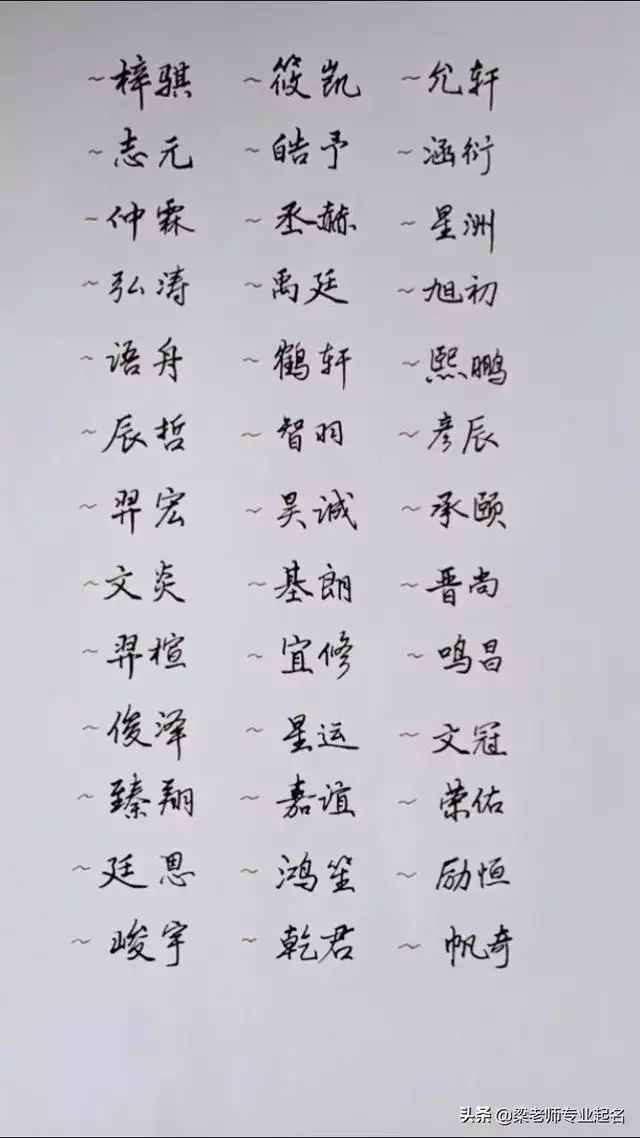 ~梓骐 ~筱凯 ~允轩
~志元 ~皓予 ~涵衍
~仲霖 ~丞赫 ~星洲
~弘涛 ~禹廷 ~旭初
~语舟 ~鹤轩 ~熙鹏
~辰哲 ~智羽 ~彦辰
~羿宏 ~昊诚 ~承颐
~文炎 ~基朗 ~晋尚
~羿楦 ~宜修 ~鸣昌
~俊泽 ~星运 ~文冠
~臻翔 ~嘉谊 ~荣佑
~廷恩 ~鸿笙 ~励恒
~峻宇 ~乾君 ~帆奇
头条 @梁老师专业起名